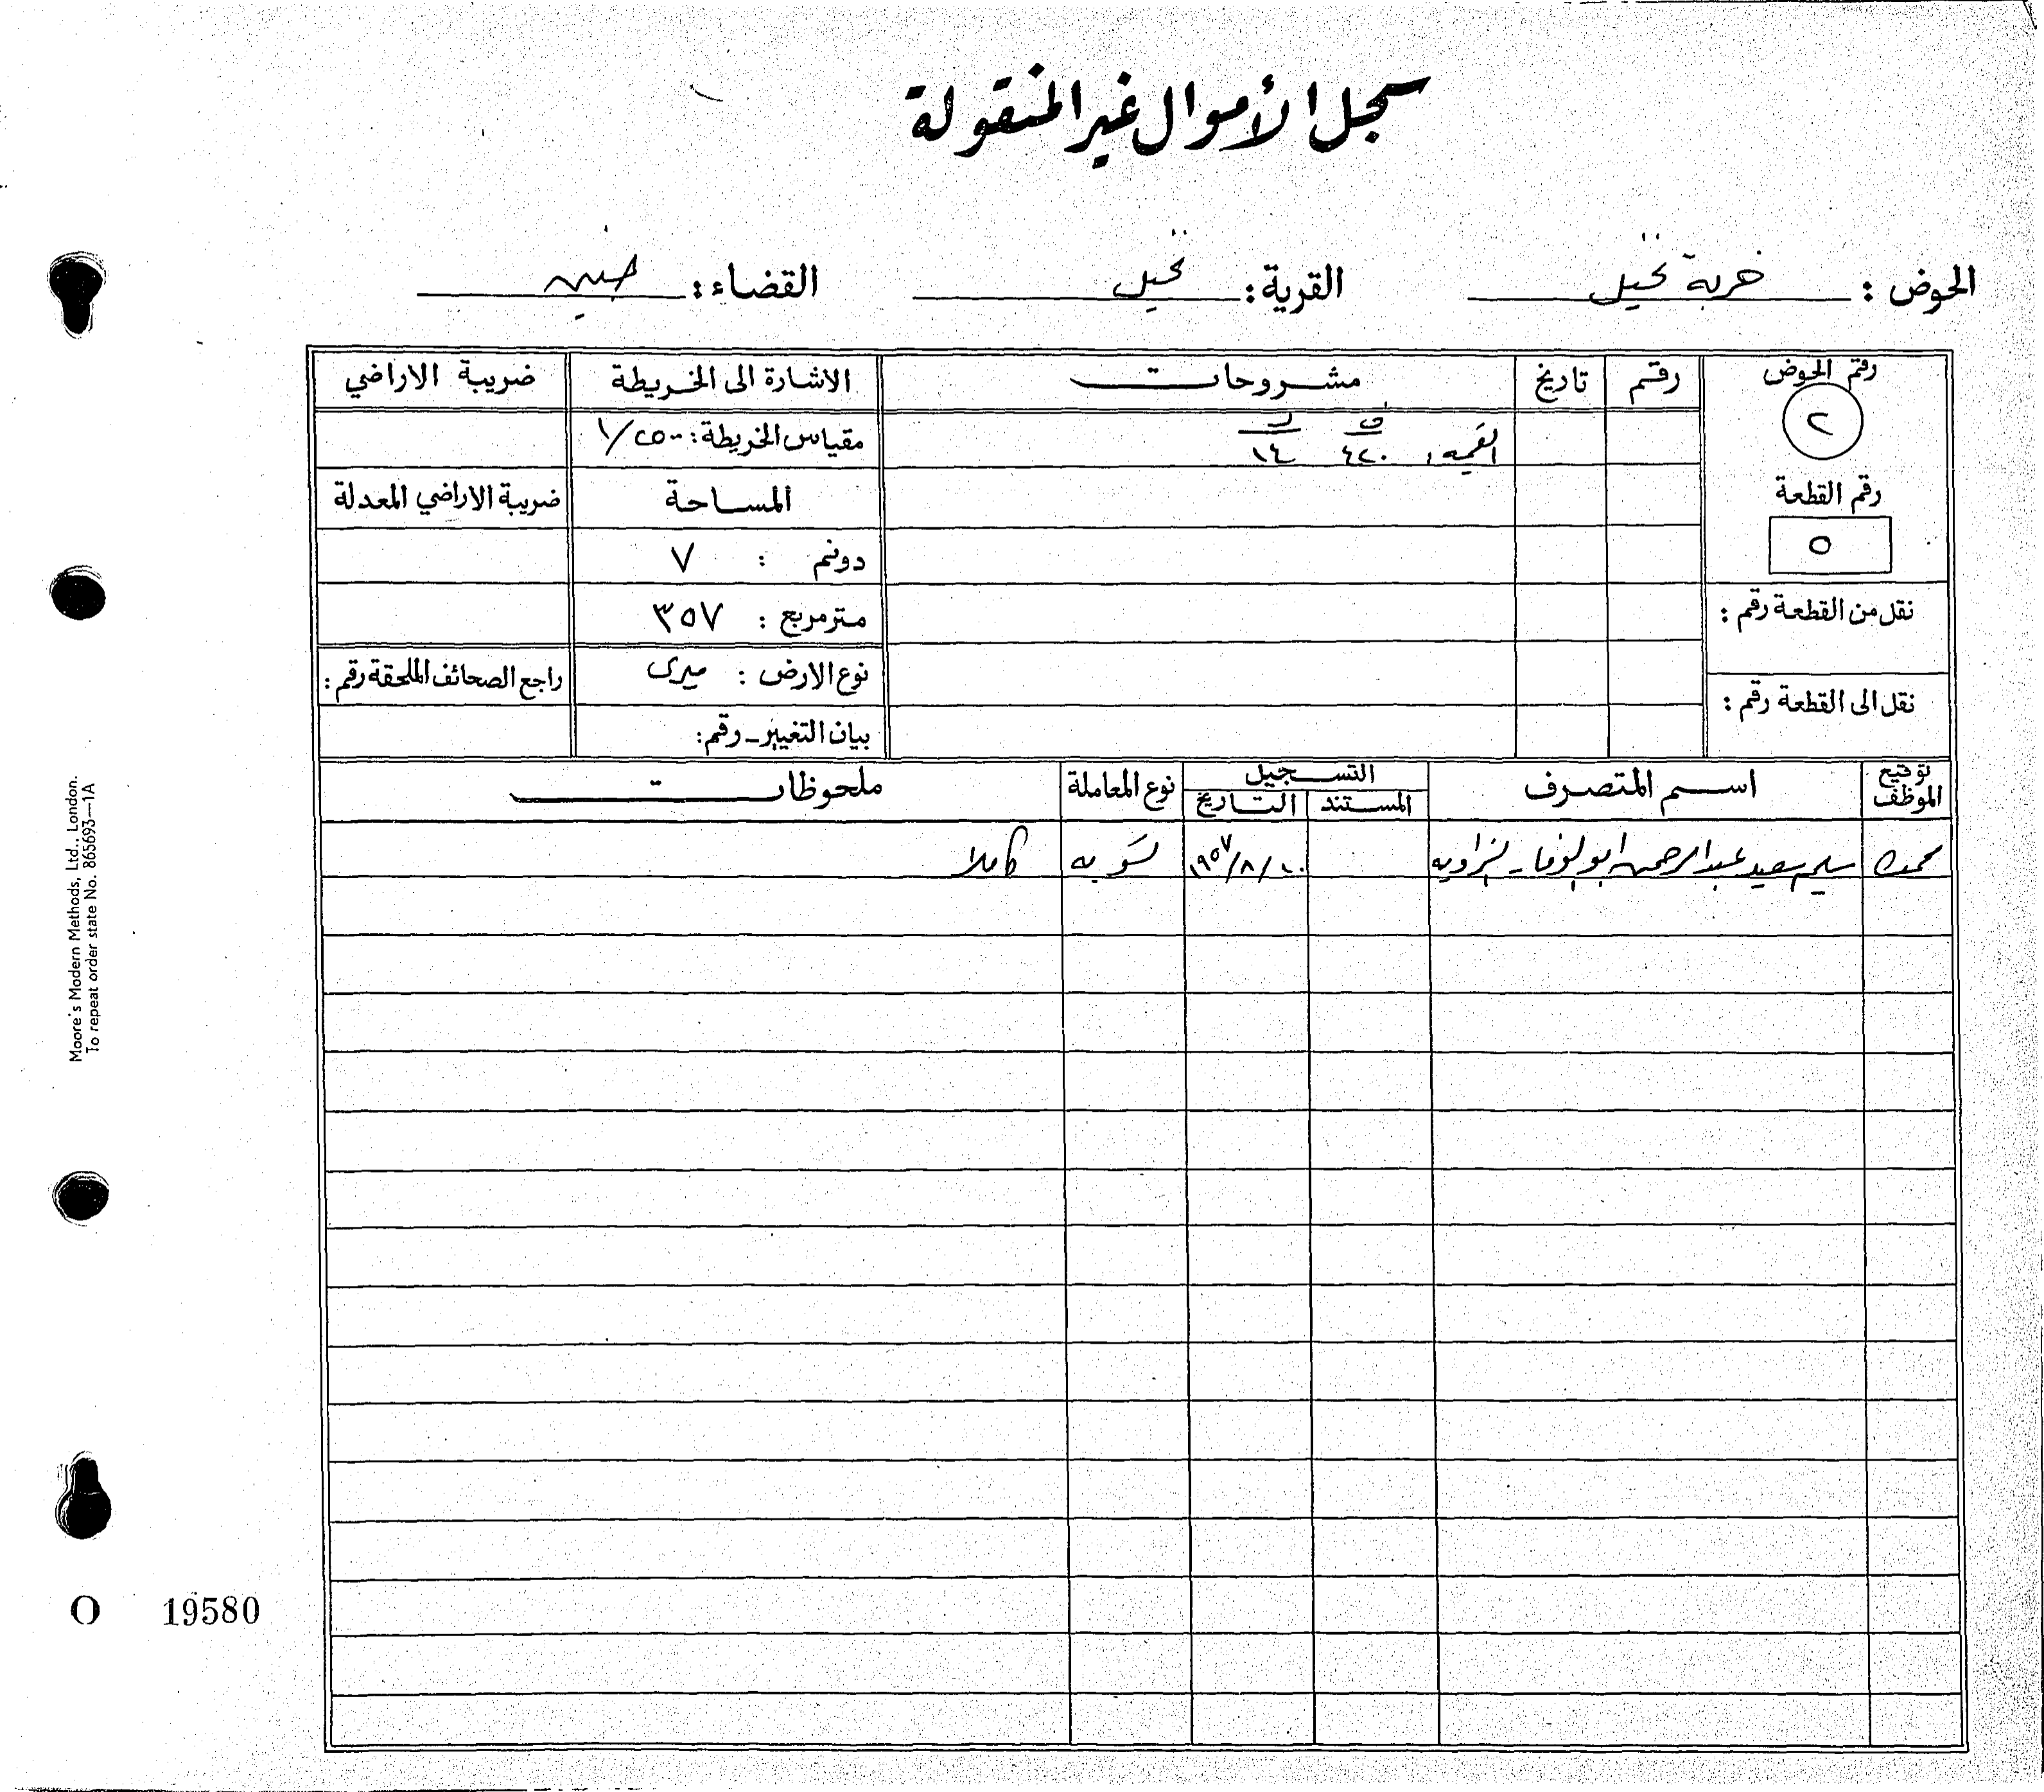 سجل الأموال غير المنقولة
الحوض : خربة القرية : القضاء : جنين
رقم الحوض رقم تاريخ مشروحات الاشارة الى الخريطة ضريبة الاراضي
٢ القيمة ٤٢٠ ١٤ مقياس الخريطة : ١/٢٥٠٠
رقم القطعة المساحة ضريبة الاراضي المعدلة
٥ دونم : ٧
نقل من القطعة رقم : متر مربع : ٣٥٧
نوع الارض : ميرى راجع الصحائف الملحقة رقم :
نقل الى القطعة رقم : بيان التغيير - رقم :
توقيع الموظف اسم المتصرف التسجيل نوع المعاملة ملحوظات
المستند التاريخ
سليم سعيد عبد الرحمن ابو الوفا - الزاويه ٢٠/٨/١٩٥٧ تسويه كاملا
Moore's Modern Methods, Ltd., London.
To repeat order state No. 865693—1A
O 19580